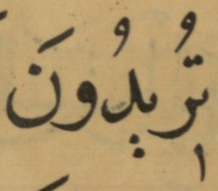 تُرِيدُونَ